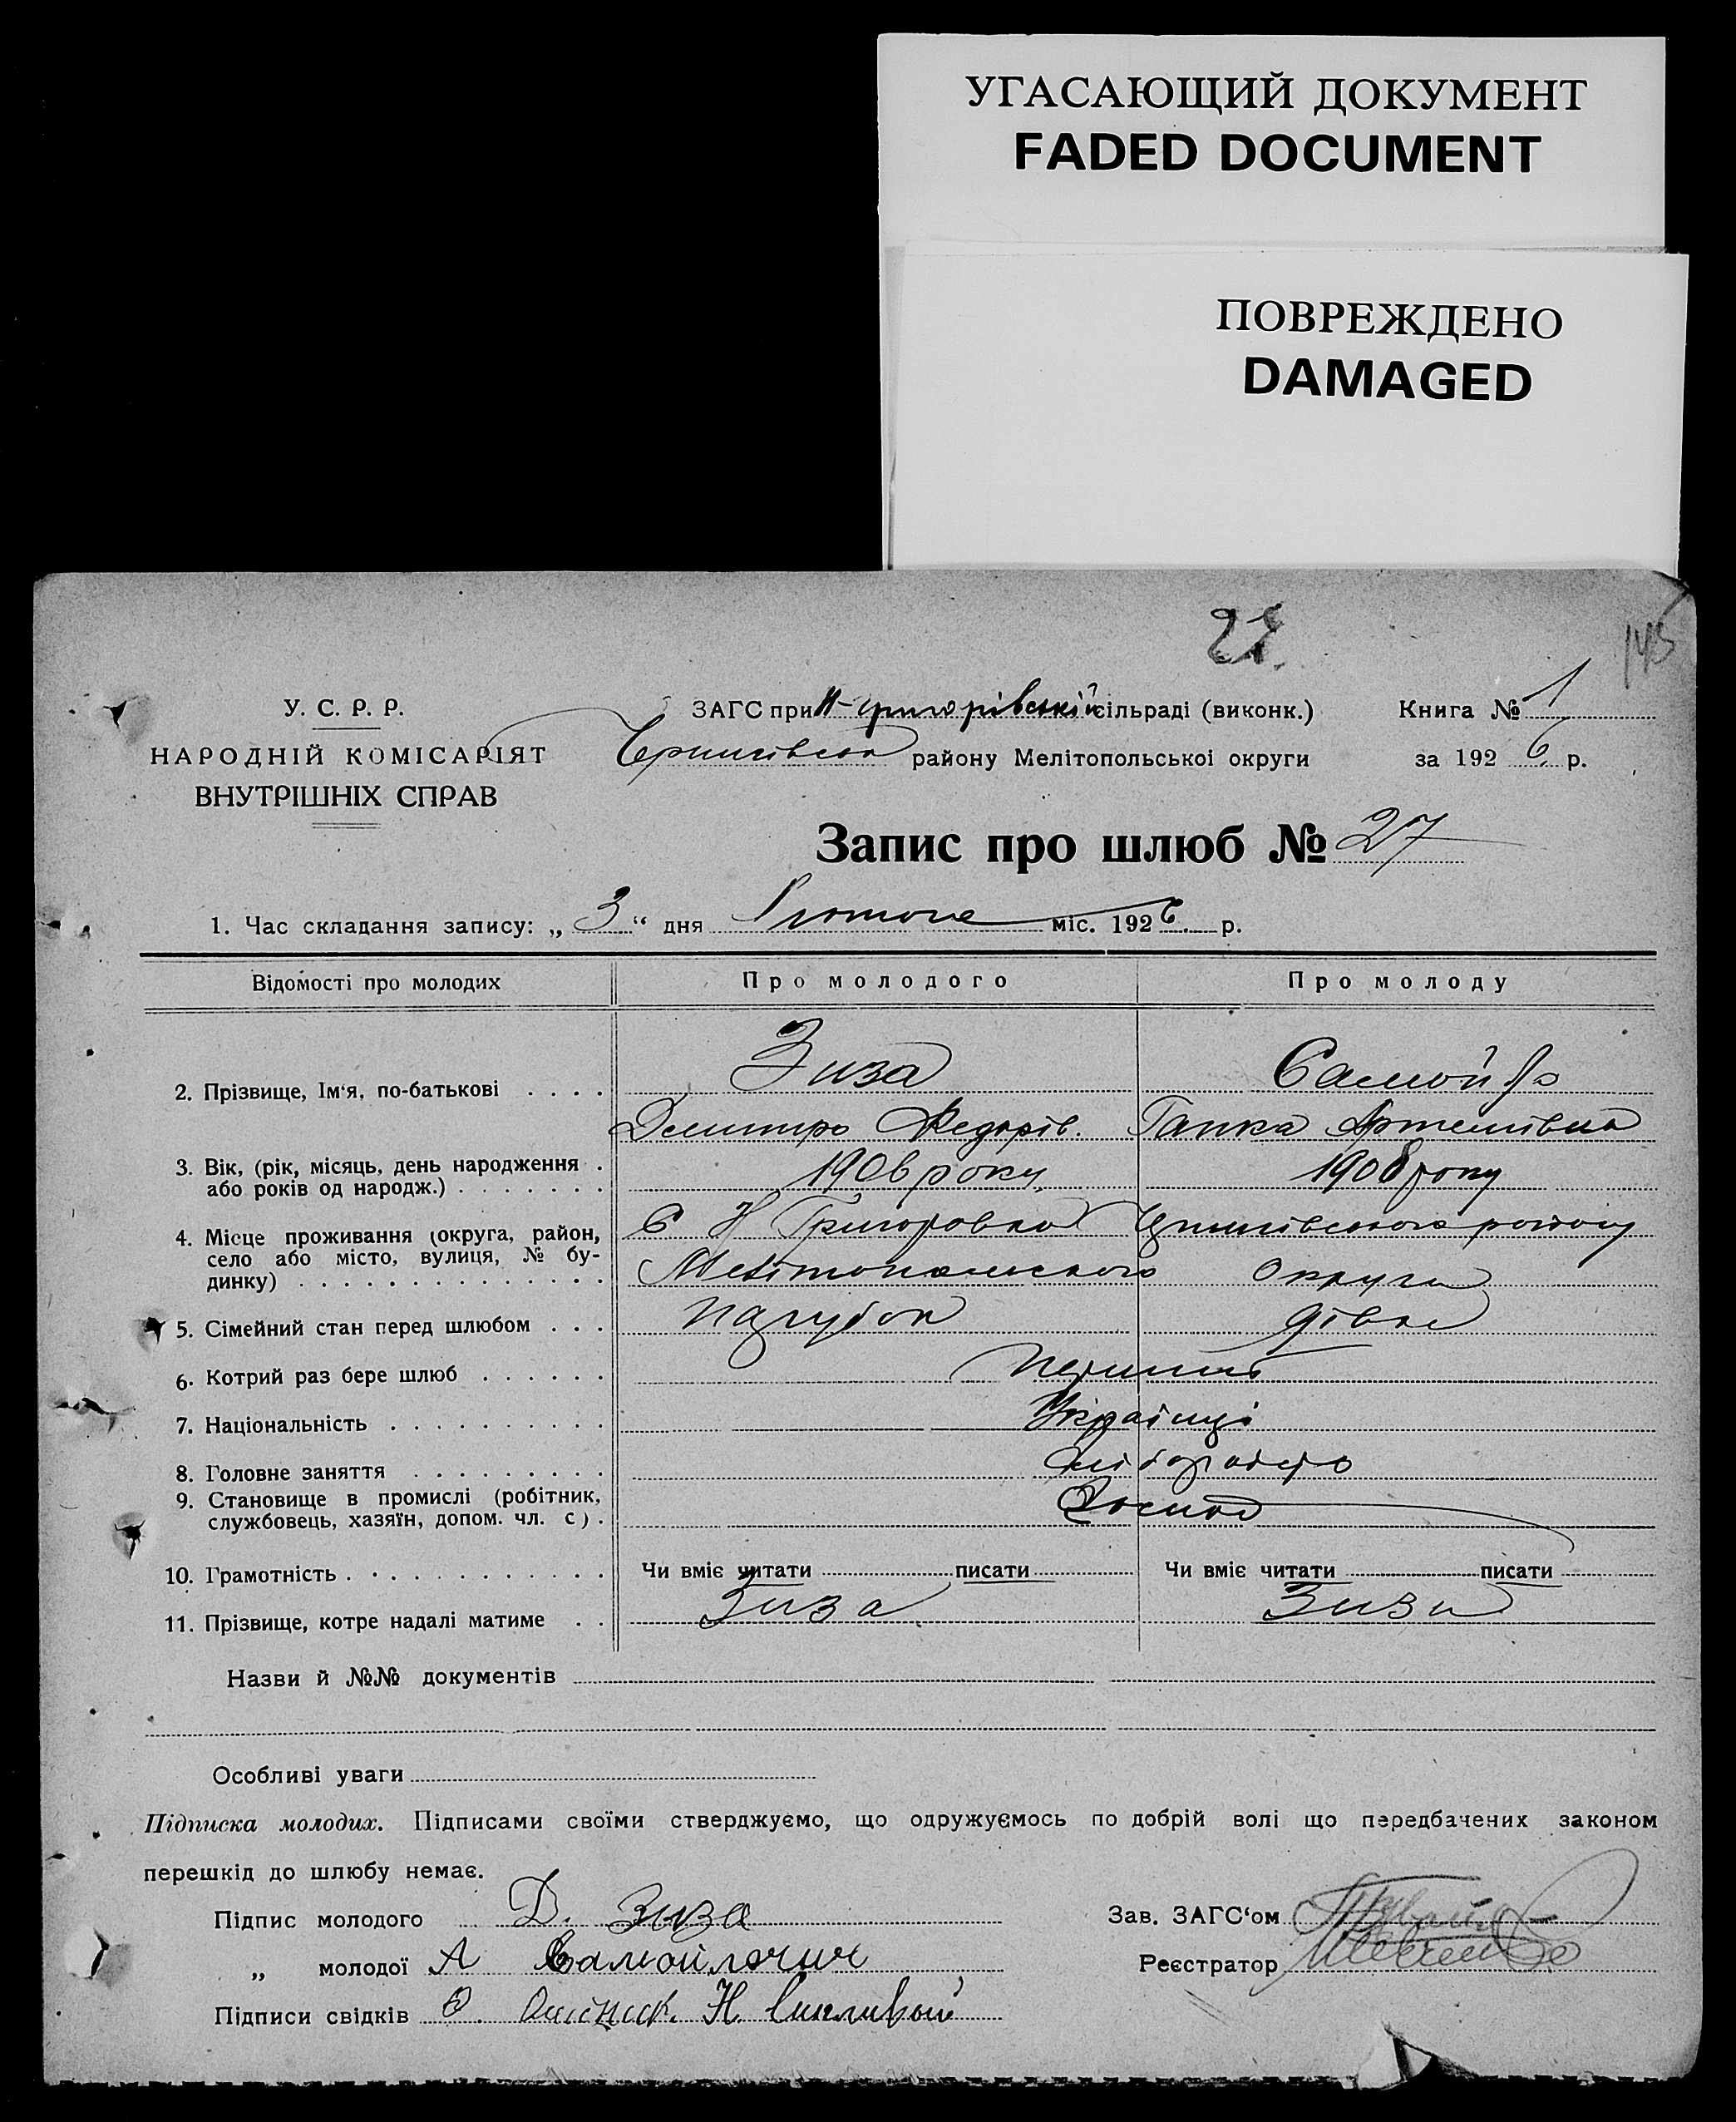 УГАСАЮЩИЙ ДОКУМЕНТ
FADED DOCUMENT
ПОВРЕЖДЕНО
DAMAGED
145
У. С. Р. Р.
НАРОДНІЙ КОМІСАРІЯТ
ВНУТРІШНІХ СПРАВ
ЗАГС при Н-Григорівській сільраді (виконк.)
Чернигівськ району Мелітопольської округи
Книга № 1
за 1926 р.
Запис про шлюб № 27
1. Час складання запису: „ 3 “ дня Лютого міс. 1926. р.
Відомості про молодих
Про молодого
Про молоду
2. Прізвище, Ім‘я, по-батькові . . . .
Зиза
Самойл
Дмитро Федорів.
Ганна Артемівна
3. Вік, (рік, місяць, день народження .
або років од народж.) . . . . . . .
1906 року
1908 року
4. Місце проживання (округа, район,
село або місто, вулиця, № бу-
динку) . . . . . . . . . . . . . .
С Н Григоровка Чернигівського району
Мелітопольського Округи
5. Сімейний стан перед шлюбом . . .
Парубок
дівка
6. Котрий раз бере шлюб . . . . . .
Перший
7. Національність . . . . . . . . . .
Українці
8. Головне заняття . . . . . . . . .
9. Становище в промислі (робітник,
службовець, хазяїн, допом. чл. с) .
10. Грамотність . . . . . . . . . . . .
Чи вміє читати писати
Чи вміє читати писати
11. Прізвище, котре надалі матиме . .
Зиза
Зиза
Назви й №№ документів
Особливі уваги
Підписка молодих. Підписами своїми стверджуємо, що одружуємось по добрій волі що передбачених законом
перешкід до шлюбу немає.
Підпис молодого Д. Зиза
„ молодої А Самойл
Підписи свідків О. Н.
Зав. ЗАГС‘ом
Реєстратор